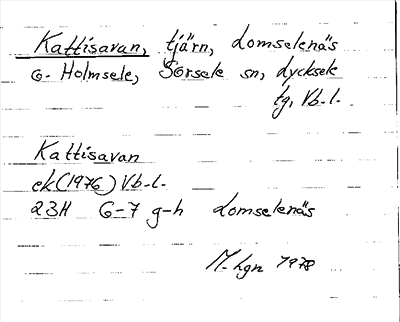 Kattisavan, tjärn, Lomselenäs
o. Holmsele, Sorsele sn, Lycksele
tg, Vb.l.
Kattisavan
ek (1976) Vb-l.
23H 6-7 g-h Lomselenäs
M. hgn 1978